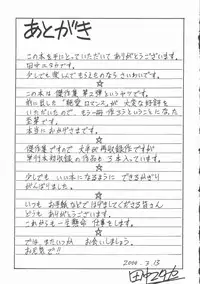 あとがき
この本を手にとっていただいてありがとうございます。
田中ユタカです。
少しでも楽しんでもらえたなら さいわいです。
☆
この本は 傑作集 第二弾というヤツです。
前に出した「初愛ロマンス」が 大変な好評を
いただいたので、もう一冊 作ろうということになった
企画です。
本当に おかげさまです。
☆
傑作集ですので 大半が再収録作ですが
単行本初収録の作品も 3本入っています。
☆
少しでも いい本になるように できるかぎり
がんばりました。
☆
いつも お手紙などで はげましてくださる皆さん
どうも ありがとうございます。
これからも 一生懸命 仕事をします。
☆
では またいつか お会いしましょう。
お元気で!!
2000.3.13
田中ユタカ